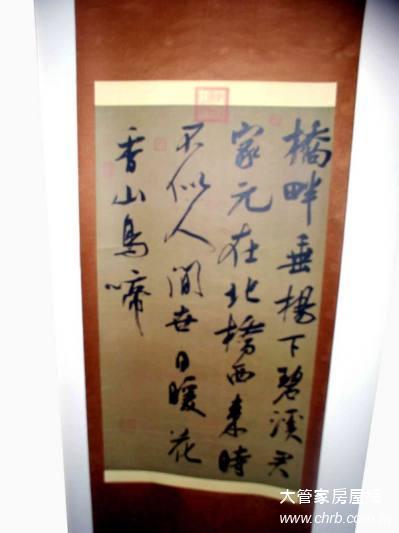 橋畔垂楊下碧溪君
家元在北橋西來時
不似人間世日暖花
香山鳥啼
大管家房屋
www.chrb.com.tw